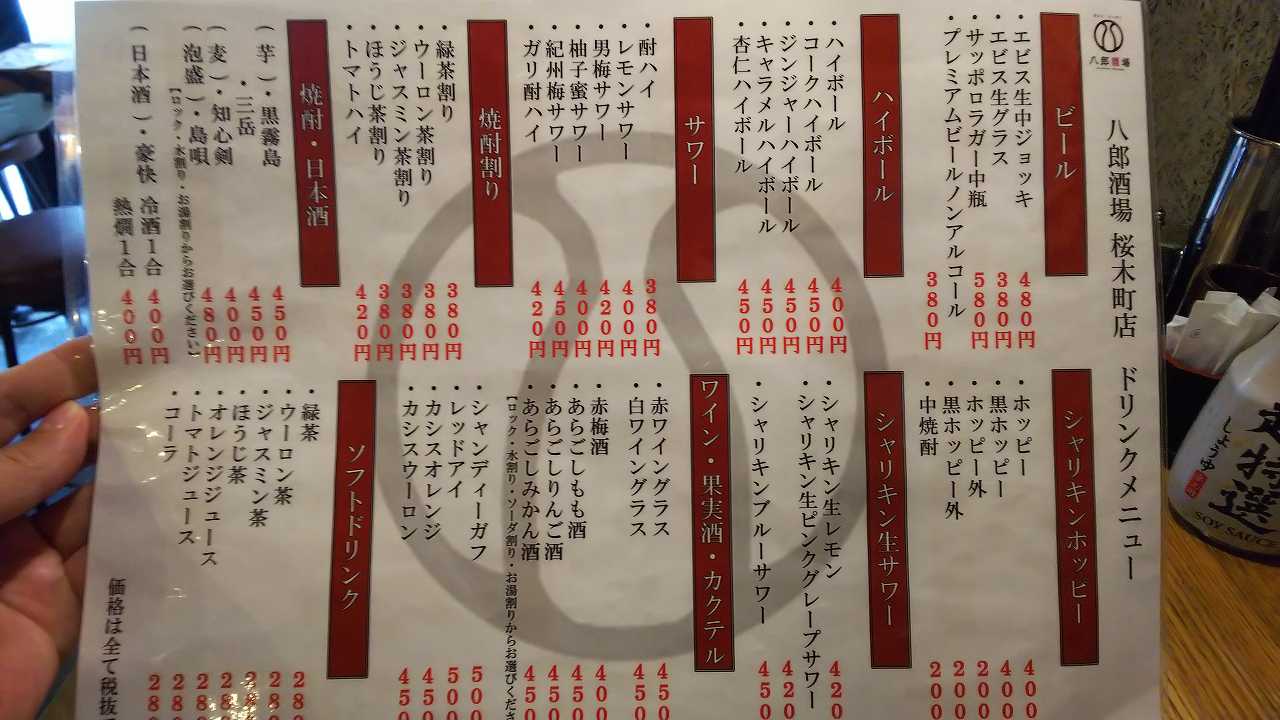 八郎酒場
八郎酒場 桜木町店 ドリンクメニュー
ビール
・エビス生中ジョッキ 480円
・エビス生グラス 380円
・サッポロラガー中瓶 580円
・プレミアムビールノンアルコール 380円
ハイボール
・ハイボール 400円
・コークハイボール 450円
・ジンジャーハイボール 450円
・キャラメルハイボール 450円
・杏仁ハイボール 450円
サワー
・酎ハイ 380円
・レモンサワー 400円
・男梅サワー 420円
・柚子蜜サワー 400円
・紀州梅サワー 450円
・ガリ酎ハイ 420円
焼酎割り
・緑茶割り 380円
・ウーロン茶割り 380円
・ジャスミン茶割り 380円
・ほうじ茶割り 380円
・トマトハイ 420円
焼酎・日本酒
(芋)・黒霧島 450円
・三岳 450円
(麦)・知心剣 400円
(泡盛)・島唄 480円
【ロック・水割り・お湯割りからお選びください】
(日本酒)・豪快 冷酒1合 400円
熱燗1合 400円
シャリキンホッピー
・ホッピー 400
・黒ホッピー 400
・ホッピー外 200
・黒ホッピー外 200
・中焼酎 200
シャリキン生サワー
・シャリキン生レモン 420
・シャリキン生ピンクグレープサワー 420
・シャリキンブルーサワー 450
ワイン・果実酒・カクテル
・赤ワイングラス 450
・白ワイングラス 450
・赤梅酒 400
・あらごしもも酒 450
・あらごしりんご酒 450
・あらごしみかん酒 450
【ロック・水割り・ソーダ割り・お湯割りからお選びくださ
・シャンディーガフ 500
・レッドアイ 500
・カシスオレンジ 450
・カシスウーロン 450
ソフトドリンク
・緑茶 280
・ウーロン茶 280
・ジャスミン茶 280
・ほうじ茶 280
・オレンジジュース 280
・トマトジュース 280
・コーラ 280
価格は全て税抜
特選
しょうゆ
SOY SAUCE